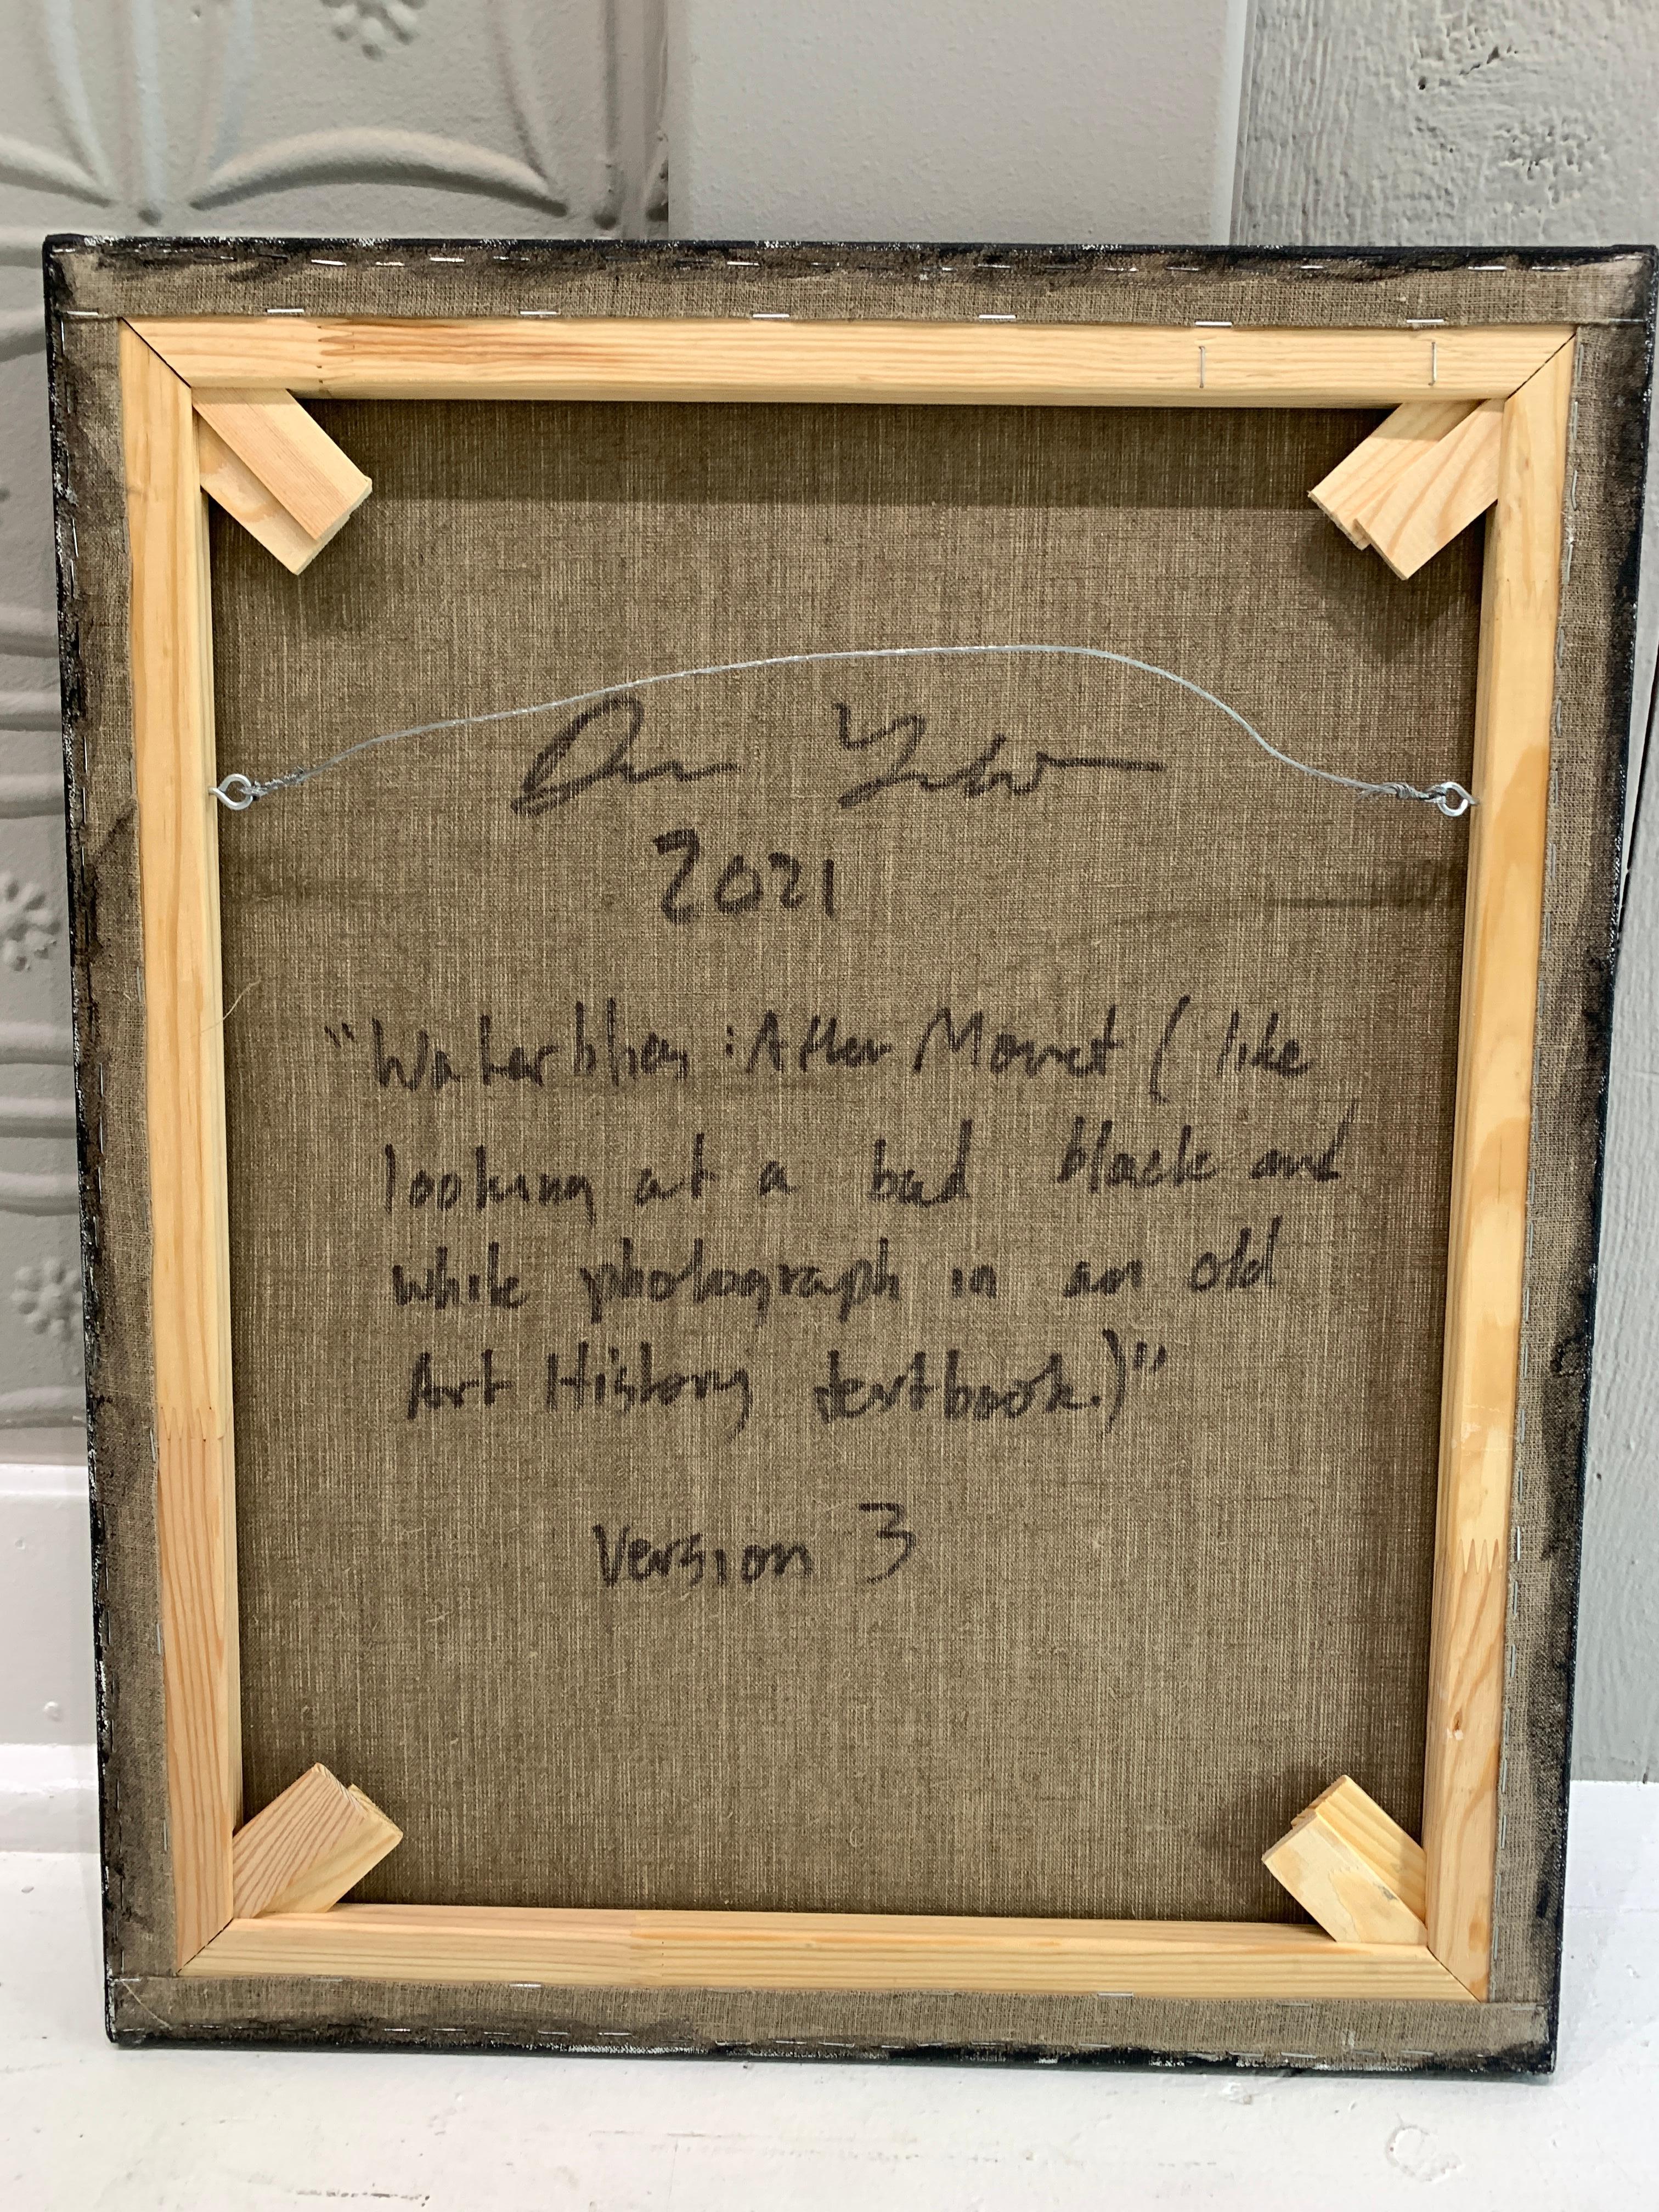 2021
"Waterlilies : After Monet ( like
looking at a bad black and
white photograph in an old
Art History textbook.)"
Version 3